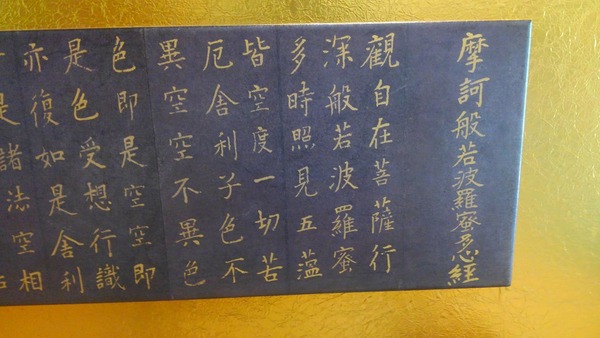 摩訶般若波羅蜜多心經
觀自在菩薩行
深般若波羅蜜
多時照見五蘊
皆空度一切苦
厄舍利子色不
異空空不異色
色即是空空即
是色受想行識
亦復如是舍利
是諸法空相